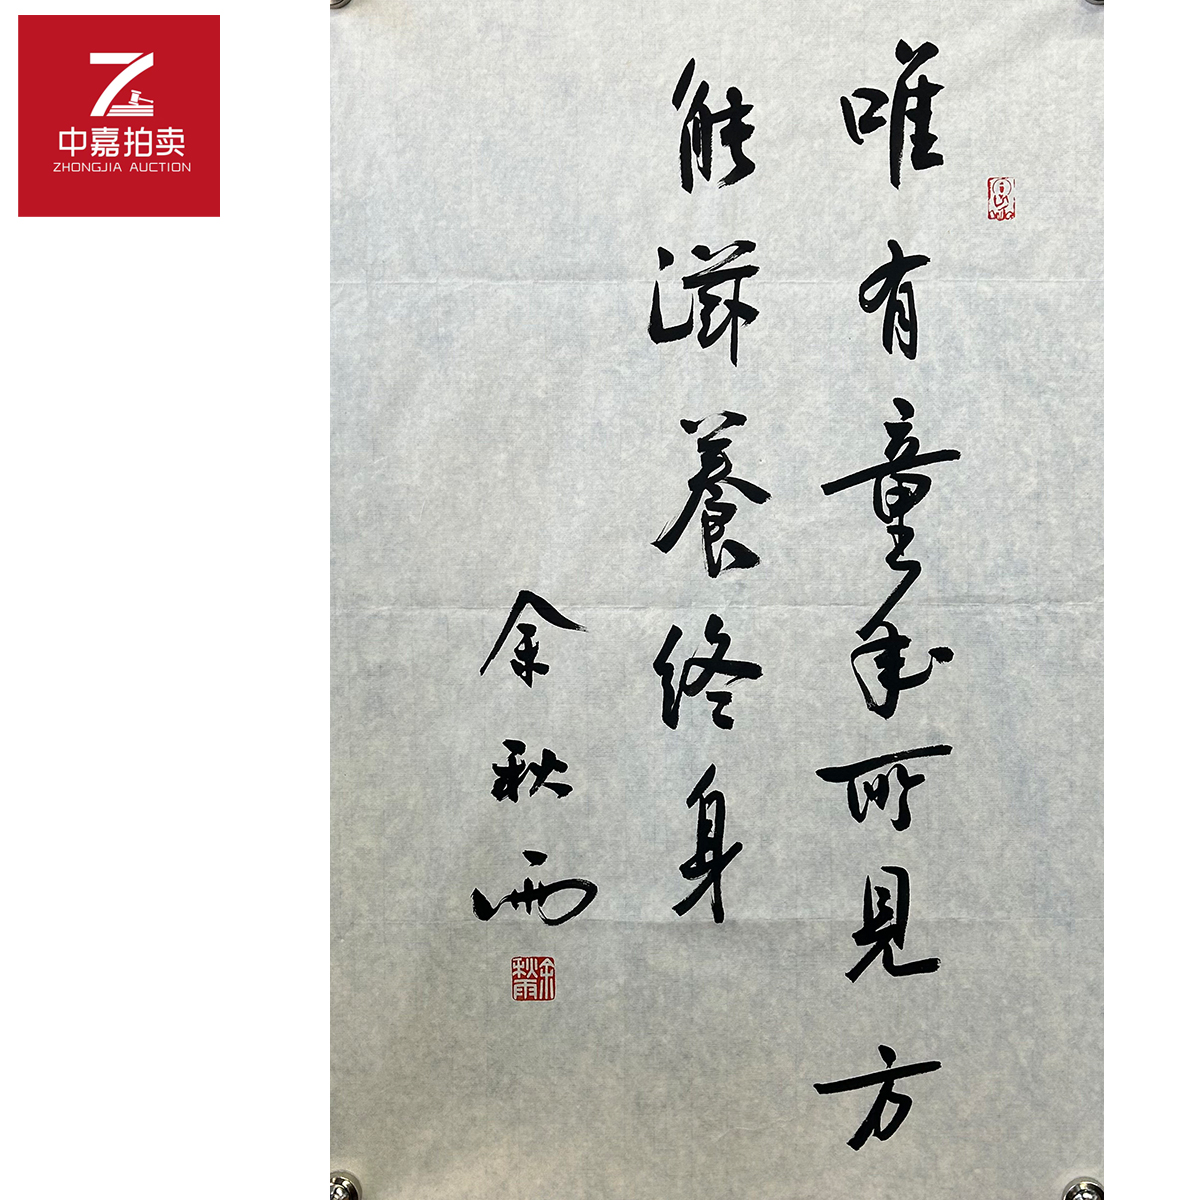 中嘉拍卖
ZHONGJIA AUCTION
唯有童年所見方
能滋養終身
余秋雨
余秋雨